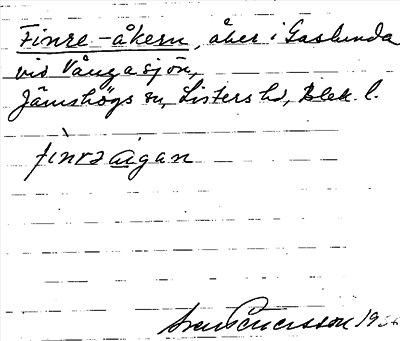 Finre-åkern, åker i Gaslunda
vid Vångasjön,
Jämshögs sn, Listers hd, Blek. l.
fìnrə aigan
Sven Benersson 19